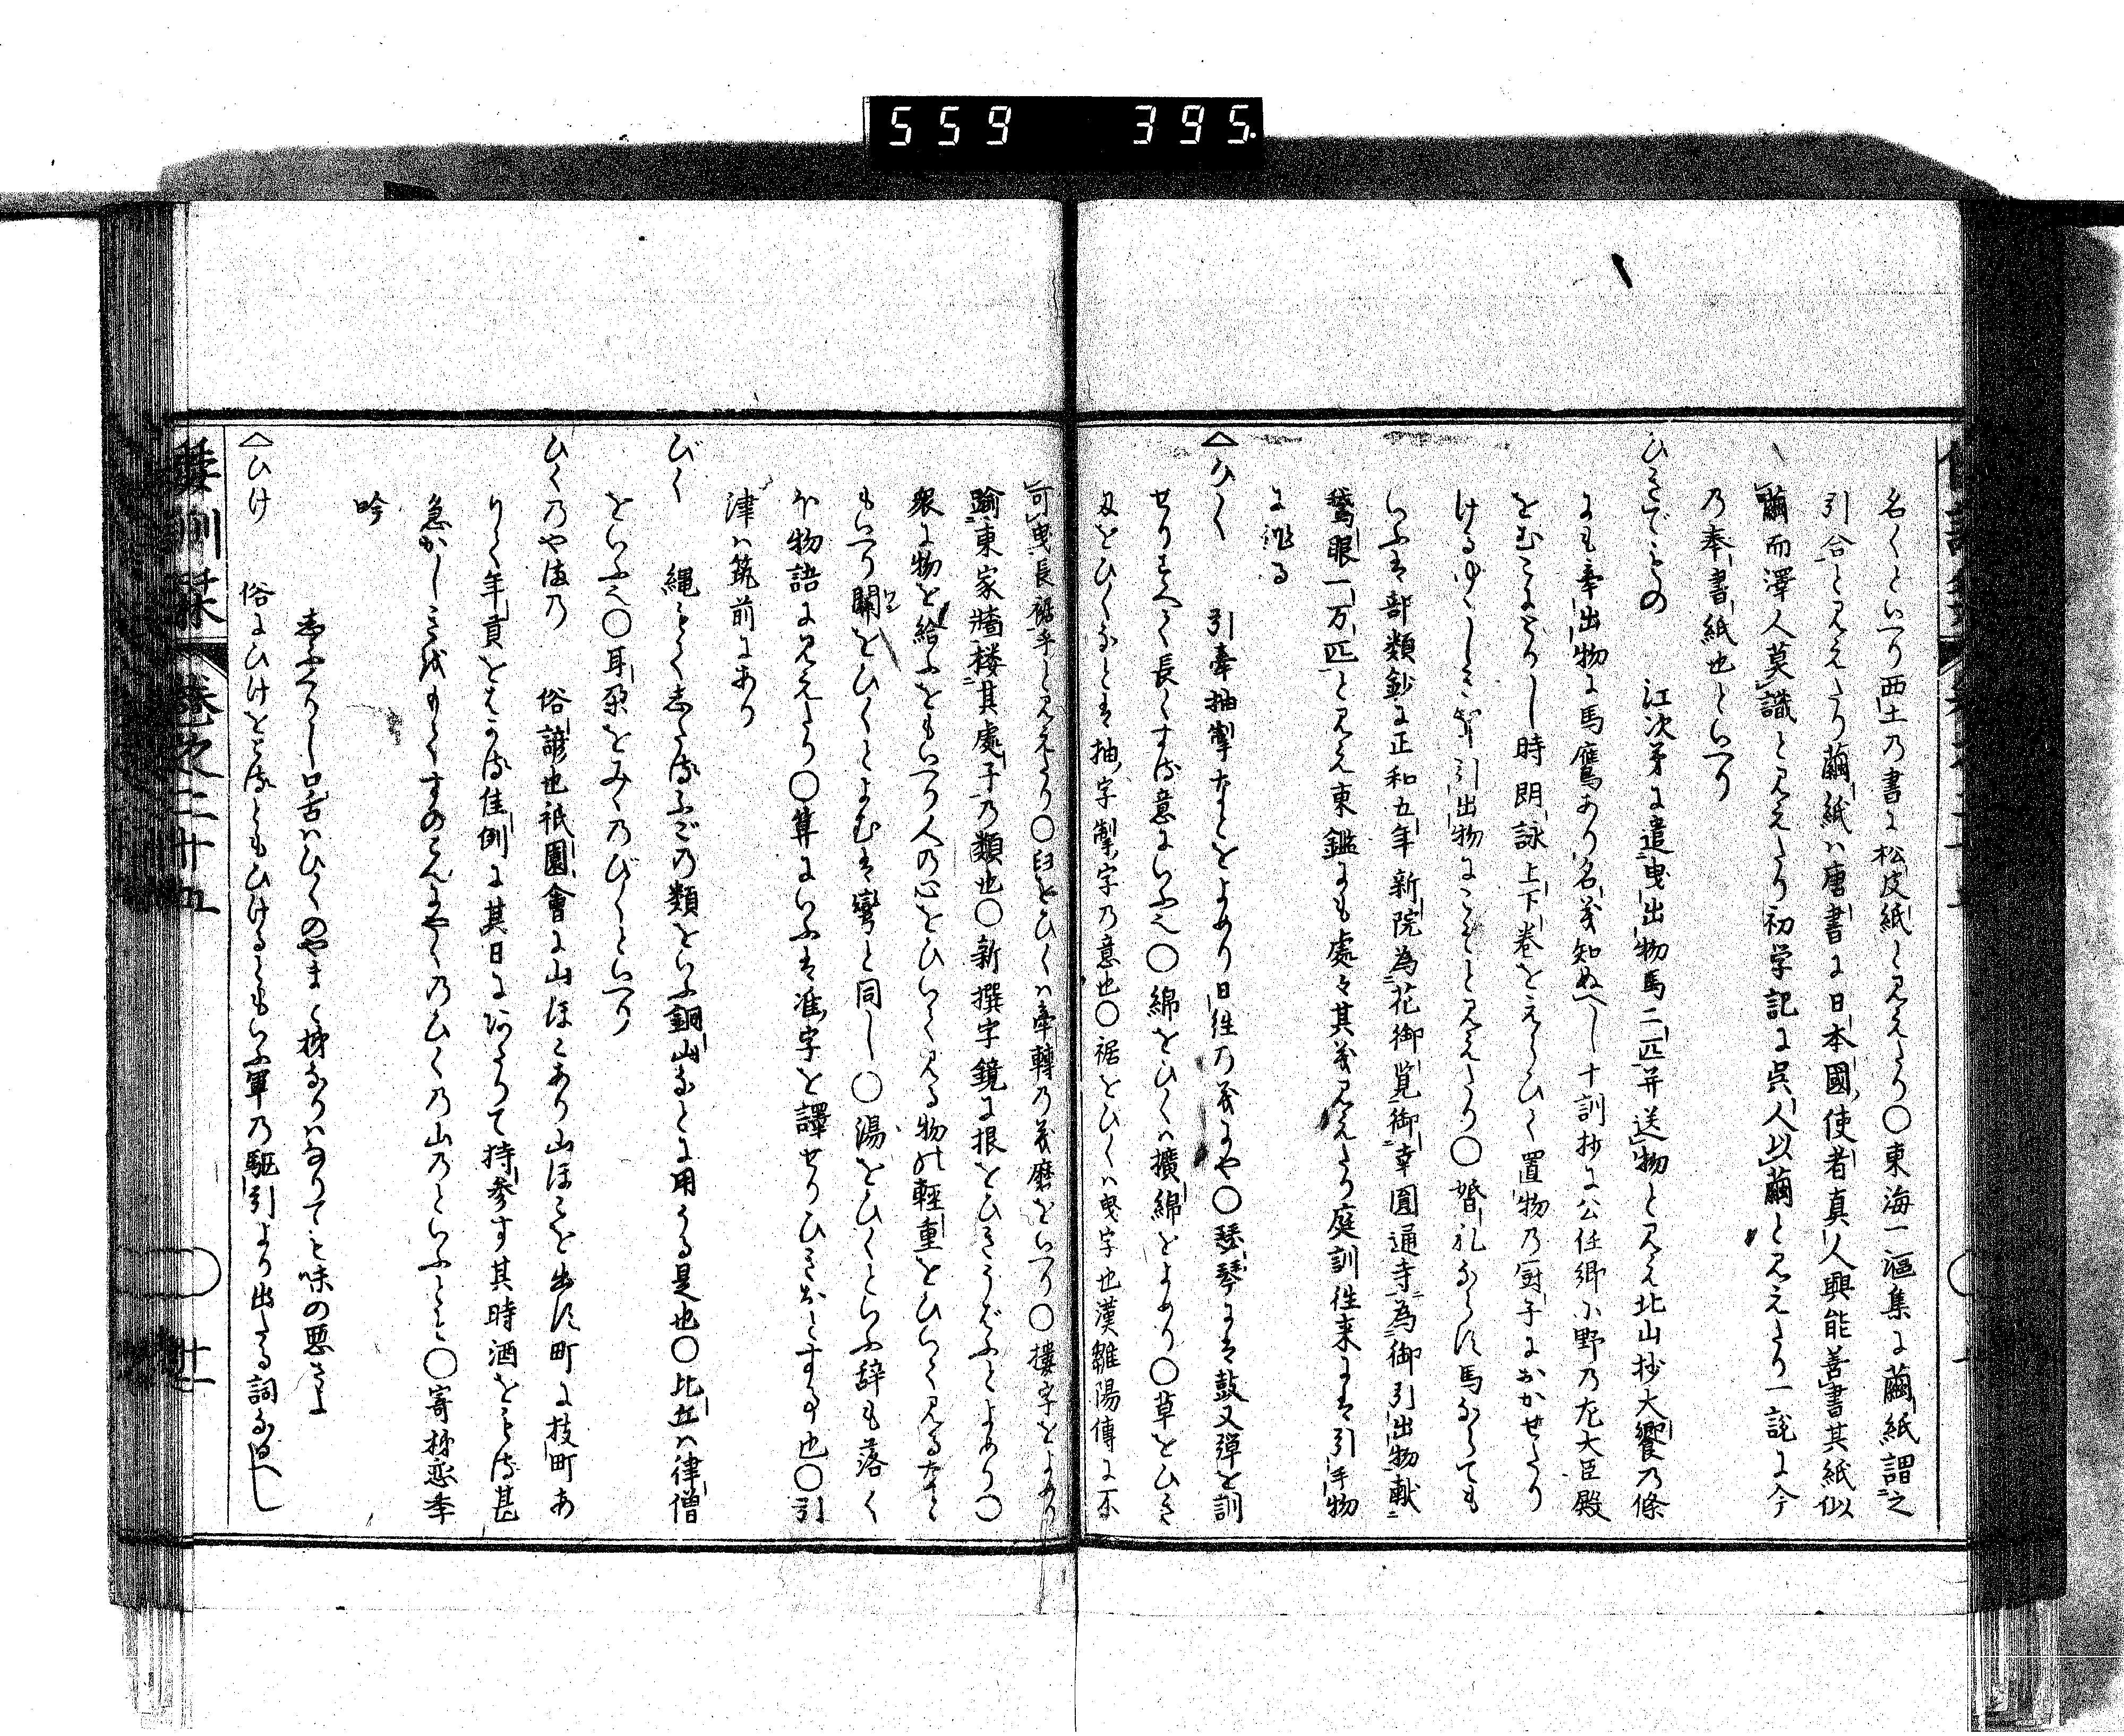 559 395.
名くといへり西土の書に松皮紙と見えたり〇東海一漚集に繭紙謂之
引合と見えたり繭紙ハ唐書に日本國使者真人興能善書其紙似
繭而澤人莫識と見えたり初学記に呉人以繭と見えたり一説に今
の奉書紙也といへり
ひきでもの 江次第に遣曳出物馬二匹并送物と見え北山抄大饗の條
にも牽出物に馬鷹あり名義知ぬへし十訓抄に公任卿小野の尤大臣殿
をむことりし時朗詠上下巻をえらひく置物の厨子におかせたり
けるゆゝしき引出物にこそと見えたり〇婚礼ならす馬ならても
いふは部類鈔に正和五年新院為花御覧御幸圓通寺為御引出物献
鵞眼一万匹と見え東鑑にも處々其義見えたり庭訓往来には引手物
に作る
△ひく 引牽抽掣なとをよめり日往の義にや〇瑟琴には鼓又弾を訓
せりすへく長くする意にいふ也〇綿をひくハ擴綿をよめり〇草をひき
刄をひくなとは抽字掣字の意也〇裾をひくハ曳字也漢雛陽傳に不
可曳長裾乎と見えたり〇臼をひくハ牽轉の義磨をいへり〇摟字をよめり
踰東家牆摟其處子の類也〇新撰字鏡に根をひきうばふとよめり〇
衆に物を給ふをもいへり人の心をひいく見る物の輕重をひいく見るなと
もいへり關をひくとよむは彎と同し〇湯をひくといふ辞も落く
ほ物語に見えたり〇算にいふは准字を譯せりひきおとする也〇引
津ハ筑前にあり
びく 縄もてしたるふごの類をいふ銅山なとに用うる是也〇比丘ハ律僧
をいふ也〇耳朶をみゝのびくといへり
ひくのやまの 俗諺也祇園會に山ほこあり山ほこを出す町に枝町あ
りく年貢をとる佳例に其日にあたりて持参す其時酒をもる甚
急かしき故もくすのこんにやくのひくの山のといふとそ〇寄梯恋季
吟
志ふりし口舌ハひくのやまく梯なりハなりてと味の悪さよ
△ひけ 俗にひけをとるともひけるともいふ軍の駈引より出たる詞なるへし
倭訓栞 卷之二十五 廿一